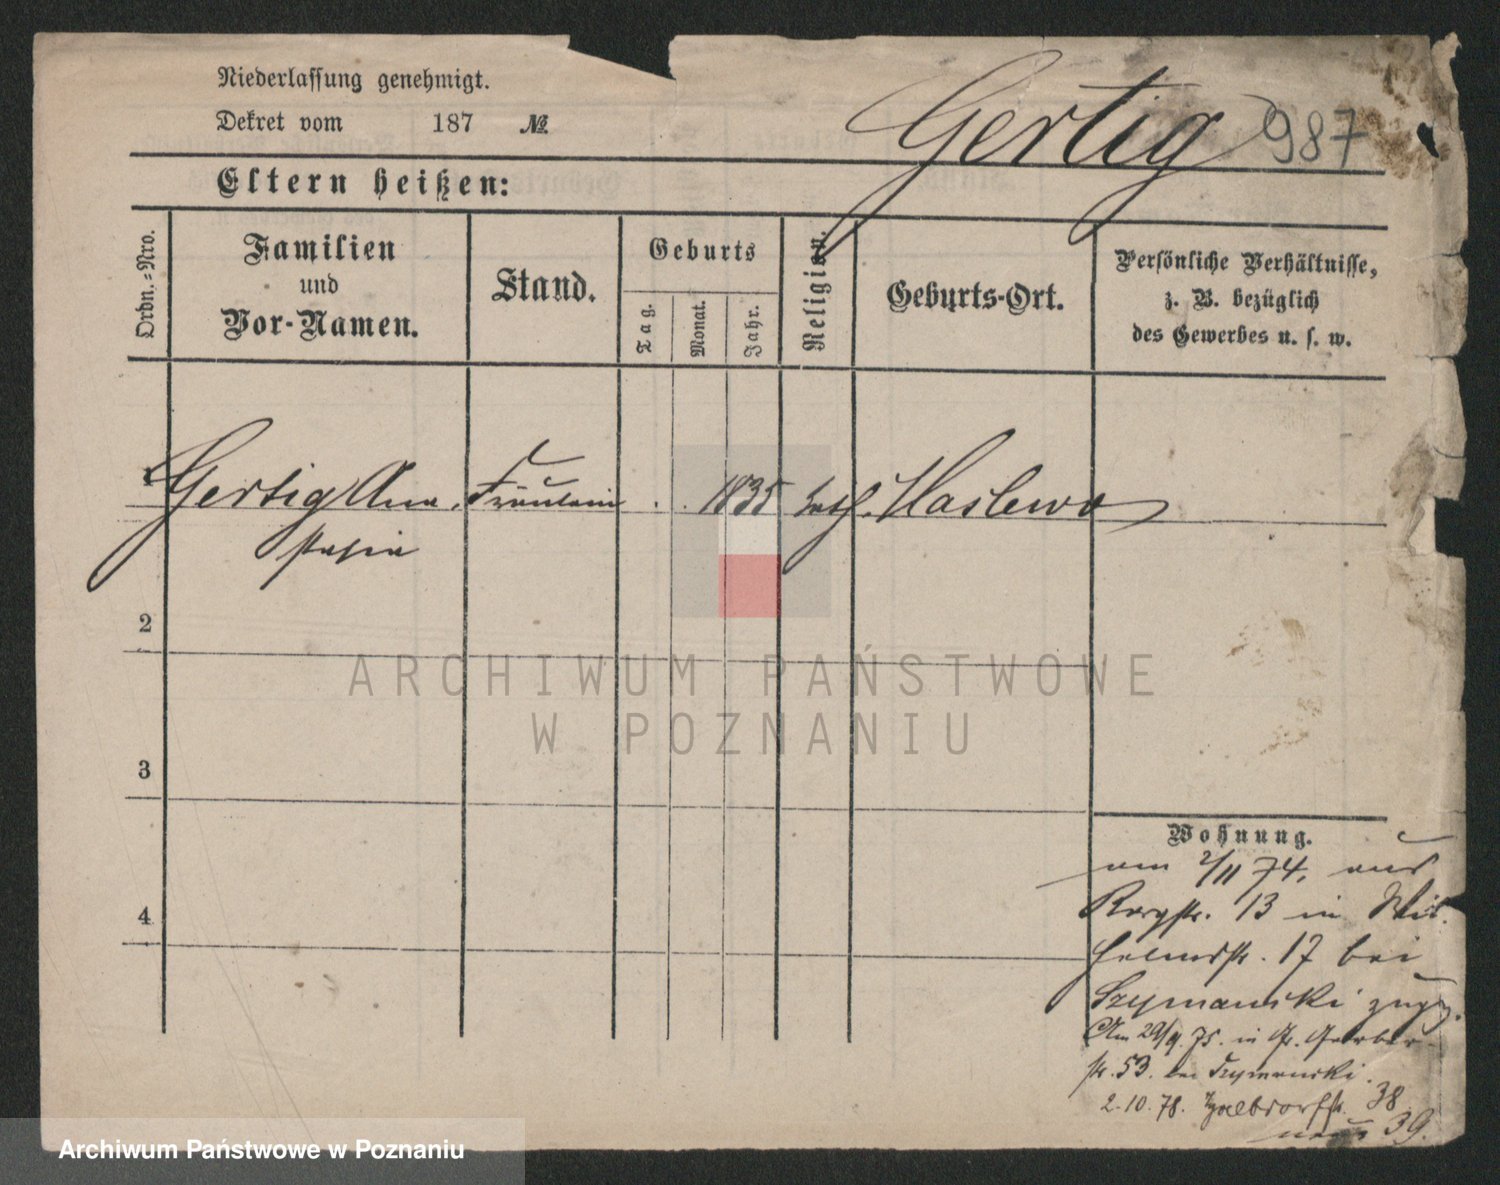 Niederlassung genehmigt.
Dekret vom 187 №
Gertig 987
Eltern heißen:
Ordn.-Nro.
Familien
und
Vor-Namen.
Stand.
Geburts
Tag.
Monat.
Jahr.
Religion.
Geburts-Ort.
Persönliche Verhältnisse,
z. B. bezüglich
des Gewerbes u. s. w.
1 Gertig Ana Fräulein 1835 kath.
stasia
2
3
4
Wohnung.
am 2/11 74, aus
13 in Wil
helmstr. 17 bei
Szymanski zugz.
Am 29/9. 75. in Gr. Gerber
str. 53. bei Szymanski.
2.10.78. 38
39.
ARCHIWUM PAŃSTWOWE
W POZNANIU
Archiwum Państwowe w Poznaniu